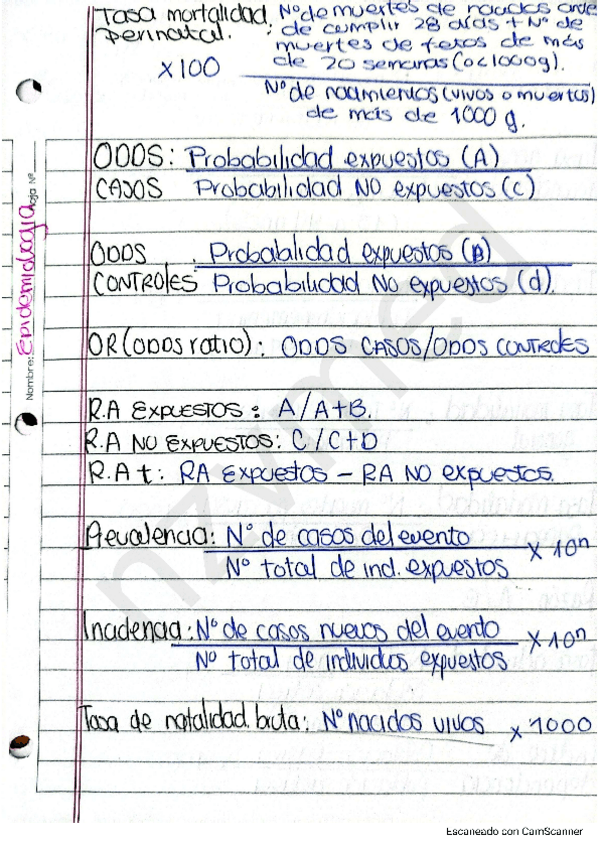 Tasa mortalidad : Nº de muertes de nacidos antes
perinatal. de cumplir 28 días + Nº de
muertes de fetos de más
x100 de 20 semanas (o<1000g).
Nº de nacimientos (vivos o muertos)
de más de 1000 g.
ODDS: Probabilidad expuestos (A)
CASOS Probabilidad NO expuestos (c)
ODDS . Probabalidad expuestos (B)
CONTROLES Probabilidad No expuestos (d).
OR (ODDS ratio): ODDS CASOS/ODDS CONTROLES
R.A EXPUESTOS: A/A+B.
R.A NO EXPUESTOS: C/C+D
R.A t: RA Expuestos – RA NO expuestos.
Prevalencia: Nº de casos del evento x 10ⁿ
Nº total de ind. expuestos
Incidencia: Nº de casos nuevos del evento x 10ⁿ
Nº total de individuos expuestos
Tasa de natalidad bruta: Nº nacidos vivos x 1000
Hoja Nº
Nombre: Epidemiología
nzvmed
Escaneado con CamScanner